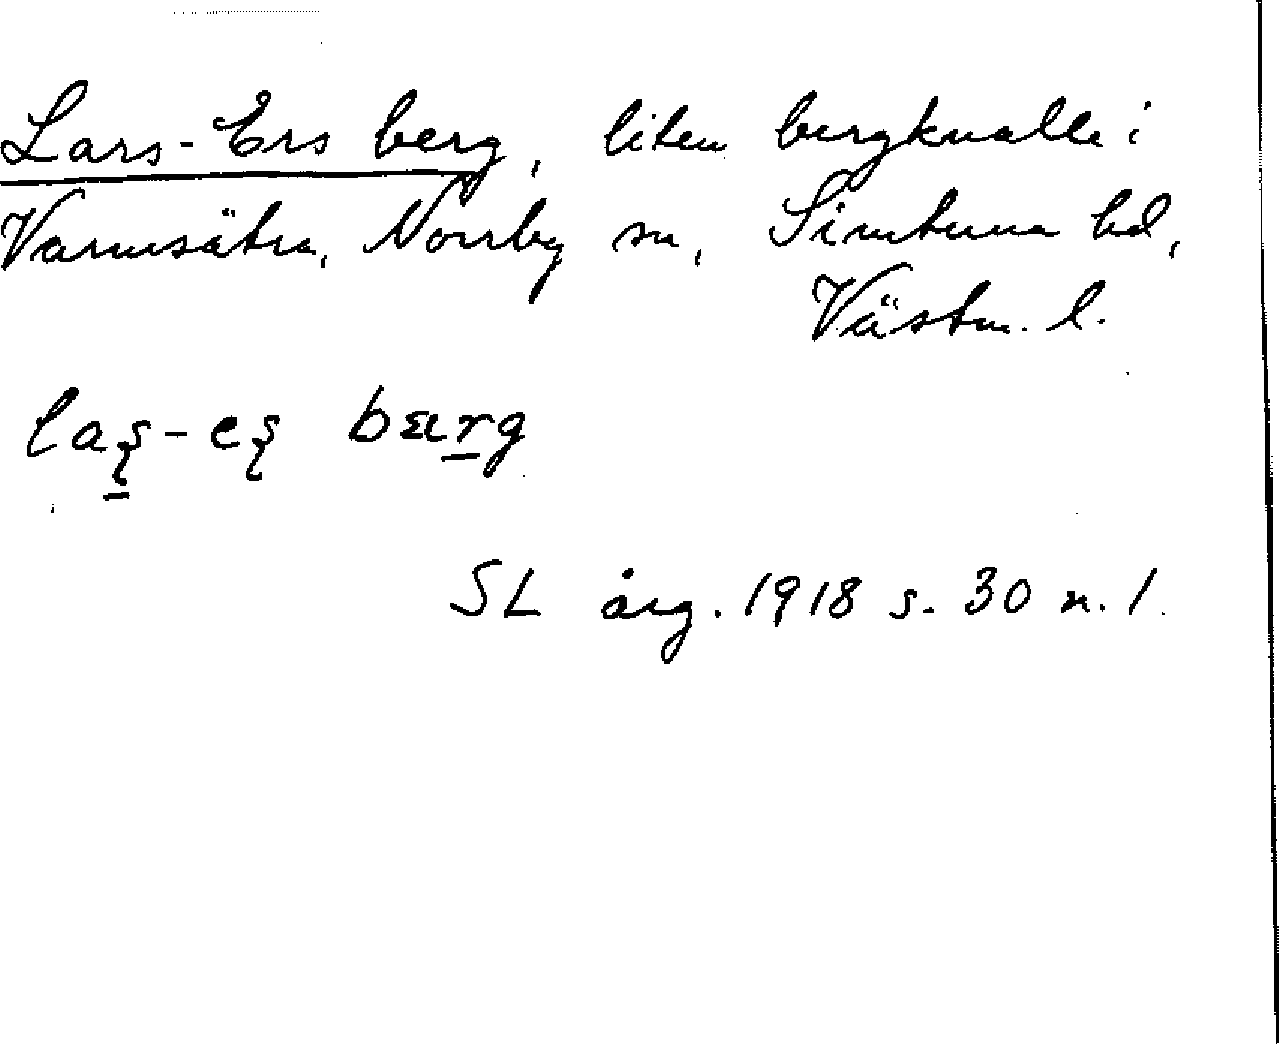 Lars-Ers berg, liten bergknalle i
Varmsätra, Norrby sn, Simtuna hd,
Västm. l.
laʂ-eʂ bærg
SL årg. 1918 s. 30 n. 1.